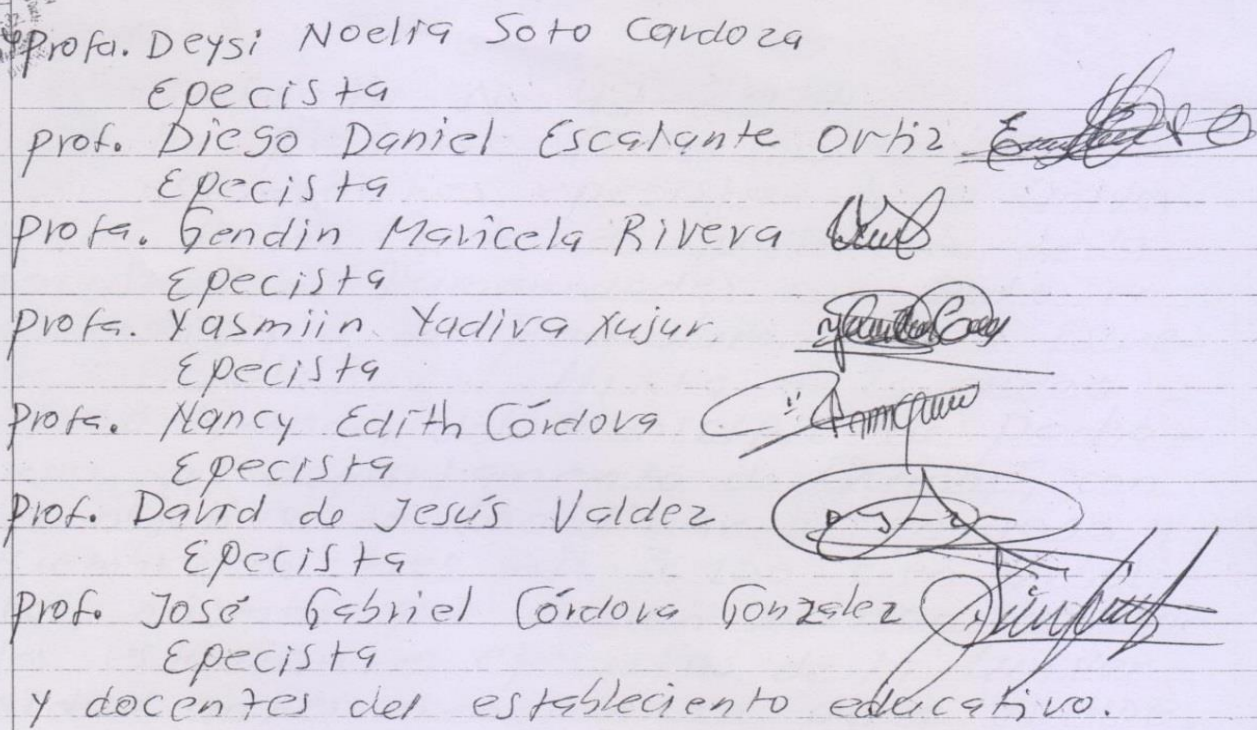 Profa. Deysi Noelia Soto Cardoza
Epecista
prof. Diego Daniel Escalante Ortiz
Epecista
profa. Gendin Maricela Rivera
Epecista
profa. Yasmiin Yadira Xujur
Epecista
profa. Nancy Edith Córdova
Epecista
prof. David de Jesús Valdez
Epecista
prof. José Gabriel Córdova Gonzalez
Epecista
y docentes del estableciento educativo.